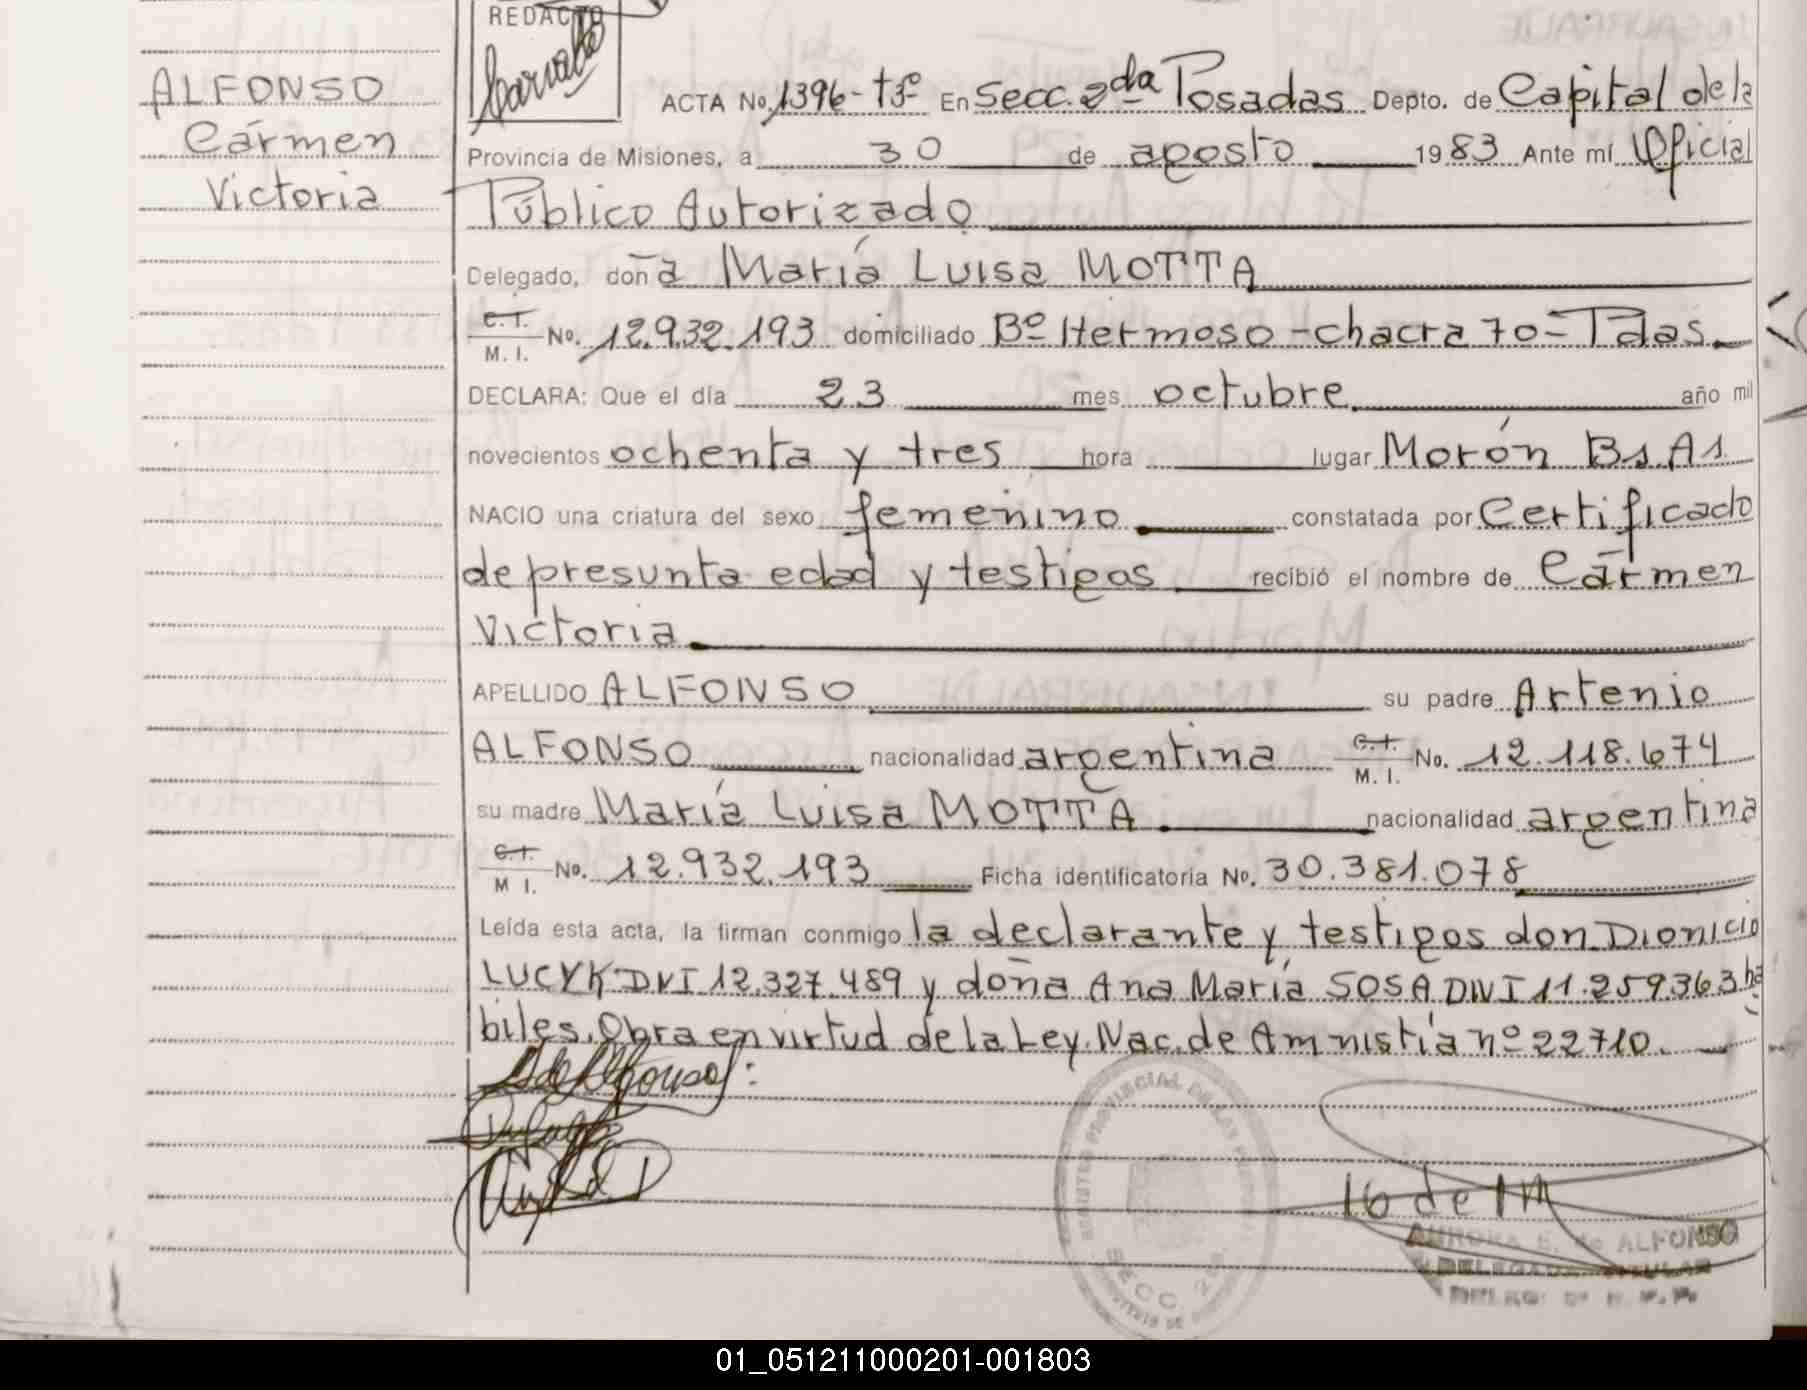 REDACTO
ALFONSO
Cármen
Victoria
ACTA No. 1396-tº3º En Secc. 2da Posadas Depto. de Capital de la
Provincia de Misiones, a 30 de agosto 1983 Ante mí Oficial
Público Autorizado
Delegado, doña María Luisa MOTTA
C.I. / M. I. No. 12.932.193 domiciliado Bº Hermoso - chacra 70 - Pdas.
DECLARA: Que el día 23 mes octubre año mil
novecientos ochenta y tres hora lugar Morón Bs As
NACIO una criatura del sexo femenino constatada por Certificado
de presunta edad y testigos recibió el nombre de Cármen
Victoria
APELLIDO ALFONSO su padre Artenio
ALFONSO nacionalidad argentina C.I. / M. I. No. 12.118.674
su madre María Luisa MOTTA nacionalidad argentina
C.I. / M I. No. 12.932.193 Ficha identificatoria No. 30.381.078
Leída esta acta, la firman conmigo la declarante y testigos don Dionicio
LUCYK DNI 12.327.489 y doña Ana María SOSA DNI 11.259.363 há
biles. Obra en virtud de la Ley. Nac. de Amnistía nº 22710.
16 de 1M
AURORA E. de ALFONSO
DELEGADA TITULAR
SECC. 2a.
01_051211000201-001803